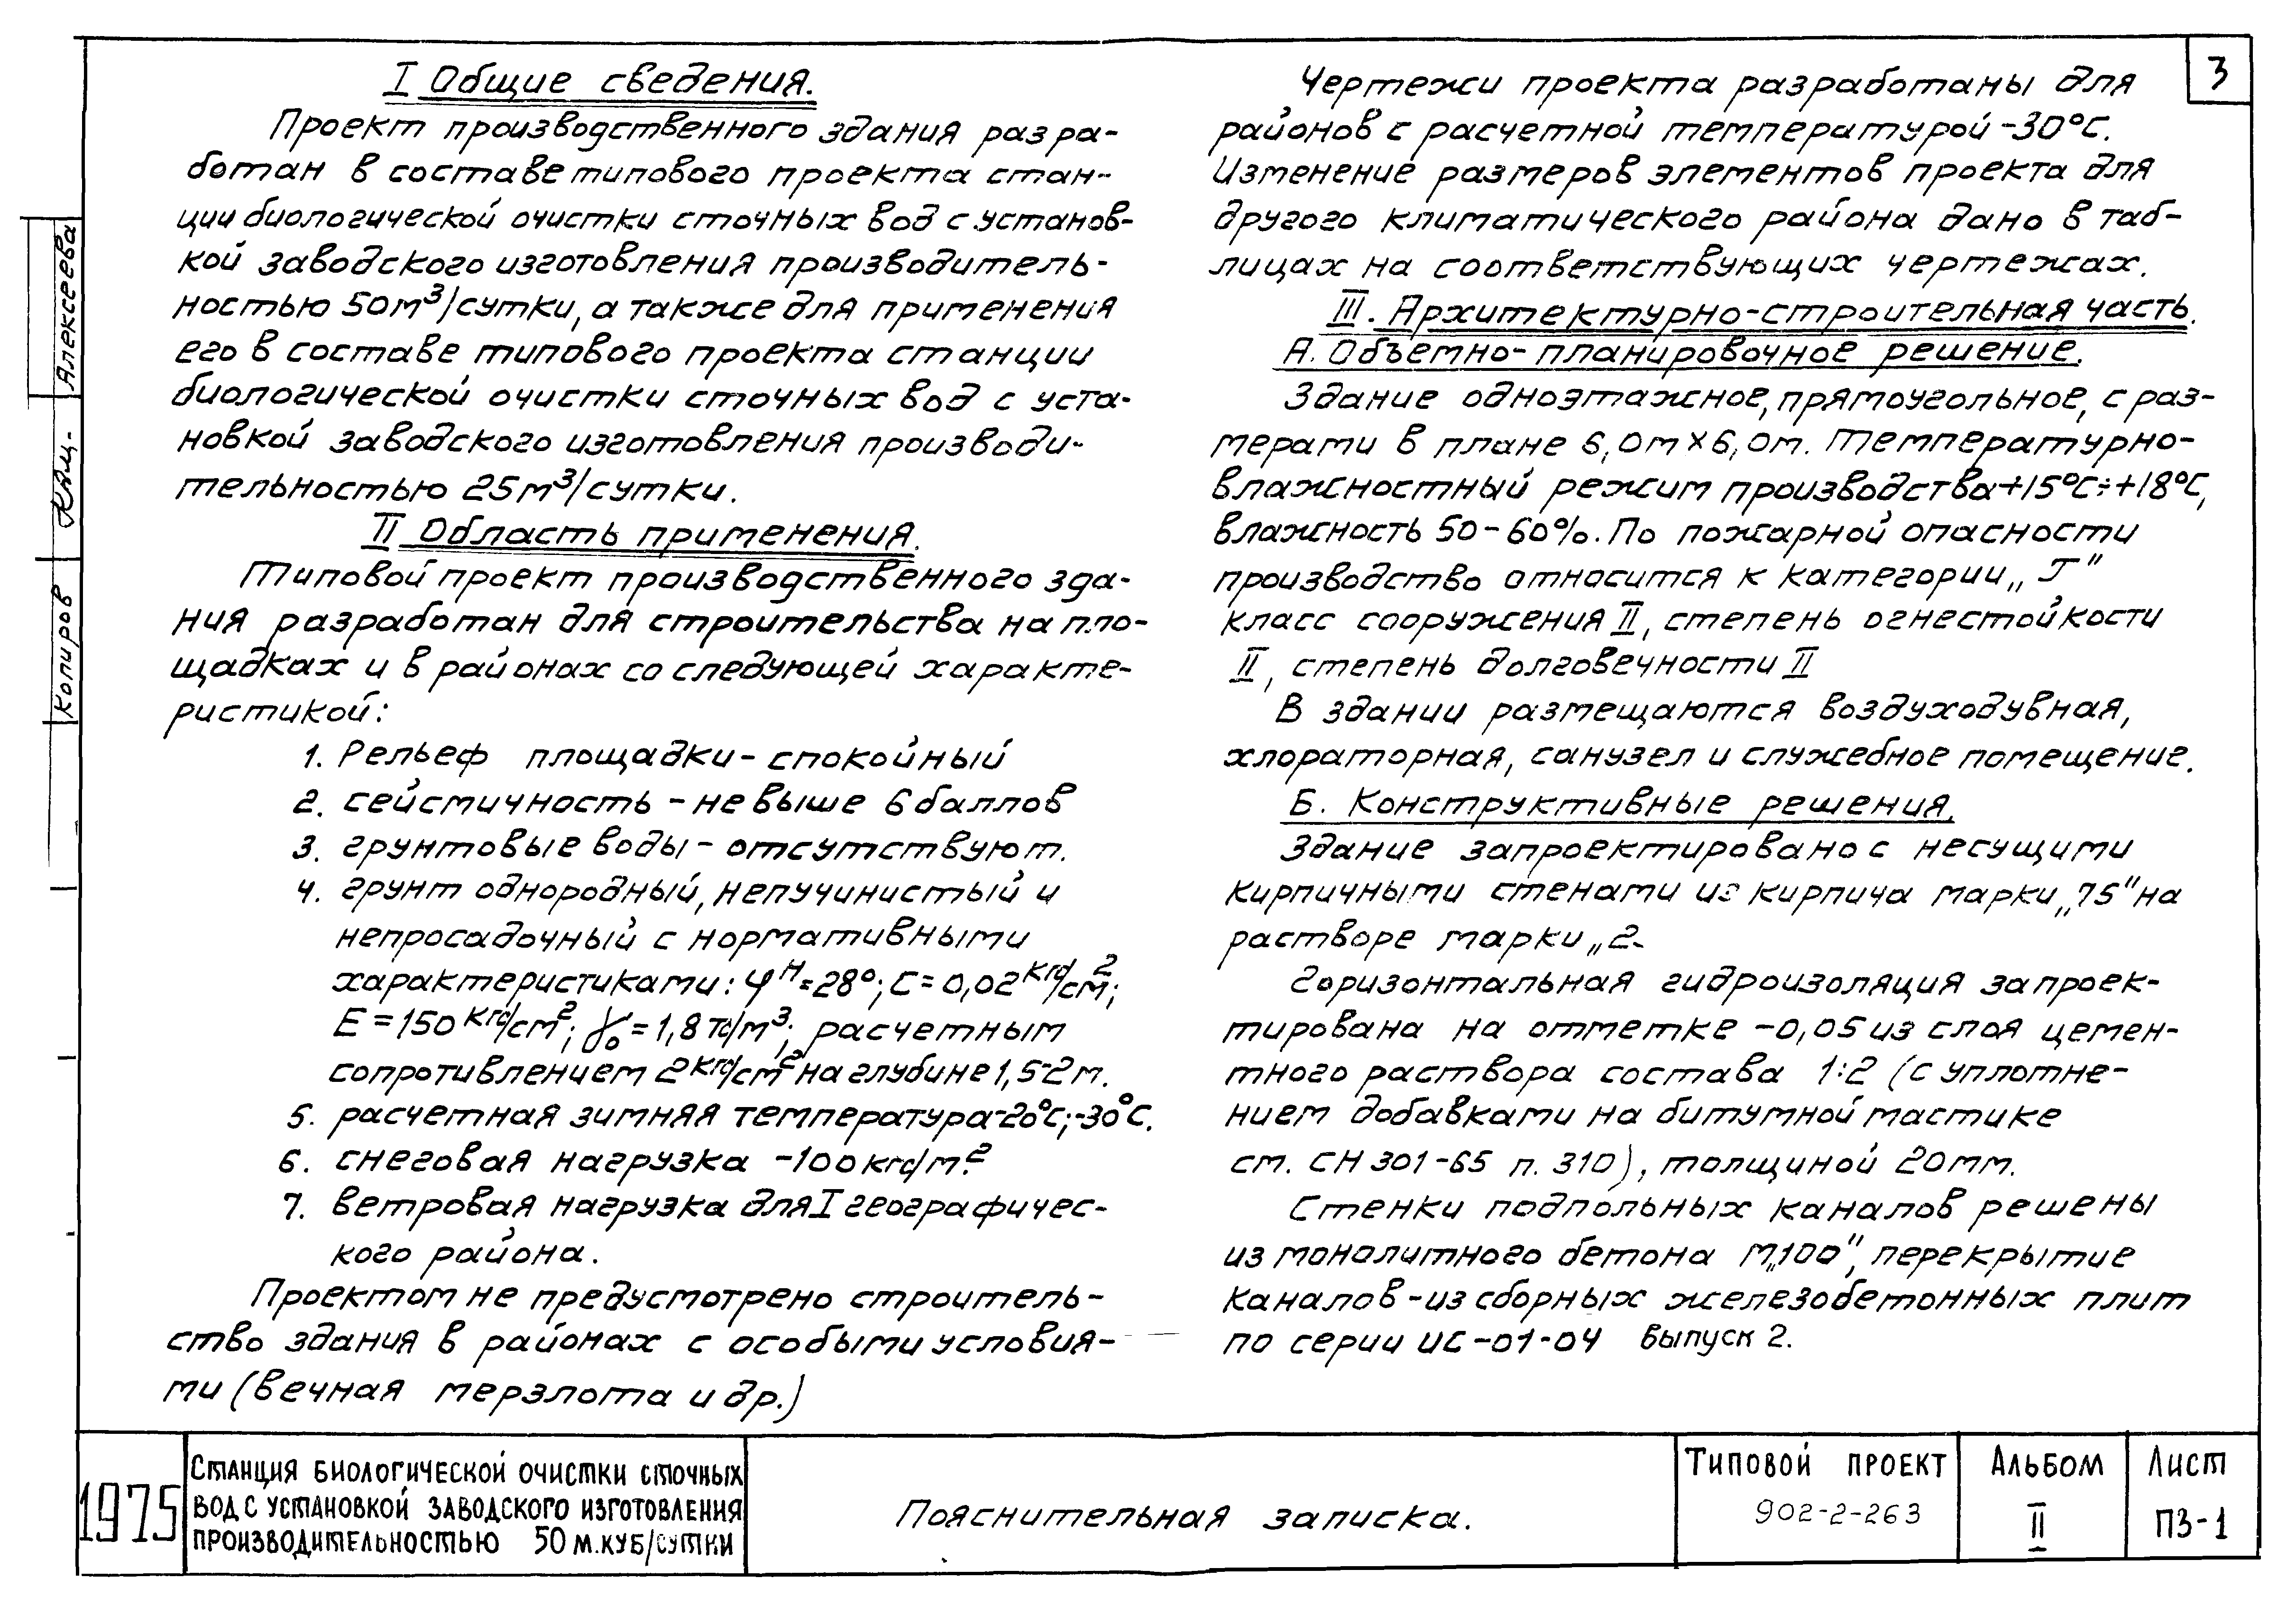 3
I Общие сведения.
Проект производственного здания разра-
ботан в составе типового проекта стан-
ции биологической очистки сточных вод с установ-
кой заводского изготовления производитель-
ностью 50м³/сутки, а также для применения
его в составе типового проекта станции
биологической очистки сточных вод с уста-
новкой заводского изготовления производи-
тельностью 25м³/сутки.
II Область применения.
Типовой проект производственного зда-
ния разработан для строительства на пло-
щадках и в районах со следующей характе-
ристикой:
1. Рельеф площадки - спокойный
2. сейсмичность - не выше 6 баллов
3. грунтовые воды - отсутствуют.
4. грунт однородный, непучинистый и
непросадочный с нормативными
характеристиками: φᴴ=28°; С=0,02кгс/см²;
Е=150кгс/см²; γ₀=1,8тс/м³; расчетным
сопротивлением 2кгс/см² на глубине 1,5-2м.
5. расчетная зимняя температура-20°С;-30°С.
6. снеговая нагрузка -100кгс/м².
7. ветровая нагрузка для I географичес-
кого района.
Проектом не предусмотрено строитель-
ство здания в районах с особыми условия-
ми (вечная мерзлота и др.)
Чертежи проекта разработаны для
районов с расчетной температурой -30°С.
Изменение размеров элементов проекта для
другого климатического района дано в таб-
лицах на соответствующих чертежах.
III. Архитектурно-строительная часть.
А. Объемно-планировочное решение.
Здание одноэтажное, прямоугольное, с раз-
мерами в плане 6,0м×6,0м. Температурно-
влажностный режим производства +15°С÷+18°С,
влажность 50-60%. По пожарной опасности
производство относится к категории „Г"
класс сооружения II, степень огнестойкости
II, степень долговечности II
В здании размещаются воздуходувная,
хлораторная, санузел и служебное помещение.
Б. Конструктивные решения.
Здание запроектировано с несущими
кирпичными стенами из кирпича марки „75" на
растворе марки „2
Горизонтальная гидроизоляция запроек-
тирована на отметке -0,05 из слоя цемен-
тного раствора состава 1:2 (с уплотне-
нием добавками на битумной мастике
см. СН 301-65 п. 310), толщиной 20мм.
Стенки подпольных каналов решены
из монолитного бетона М„100", перекрытие
каналов - из сборных железобетонных плит
по серии ИС-01-04 выпуск 2.
Копиров
Алексеева
1975
Станция биологической очистки сточных
вод с установкой заводского изготовления
производительностью 50 м.куб/сутки
Пояснительная записка.
Типовой проект
902-2-263
Альбом
II
Лист
ПЗ-1